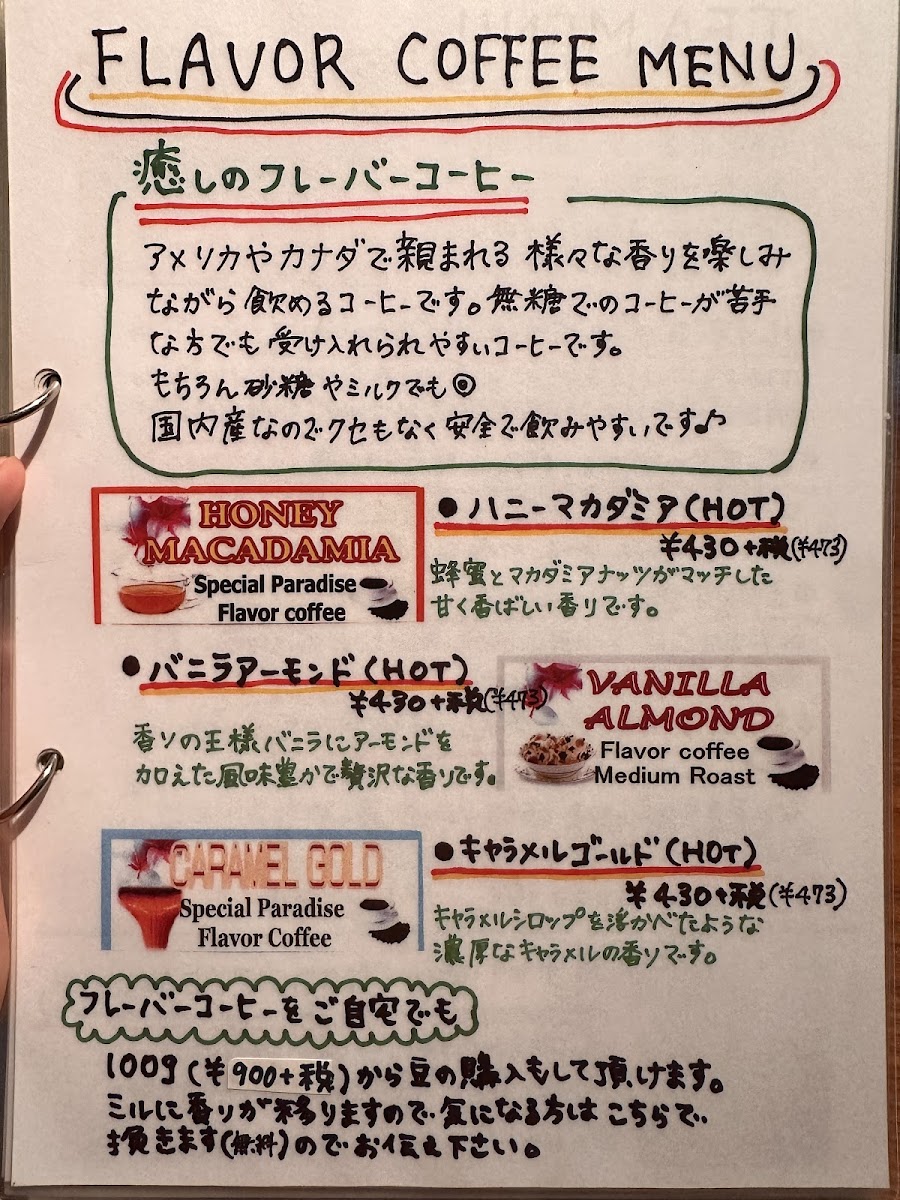 FLAVOR COFFEE MENU
癒しのフレーバーコーヒー
アメリカやカナダで親まれる様々な香りを楽しみ
ながら飲めるコーヒーです。無糖でのコーヒーが苦手
な方でも受け入れられやすいコーヒーです。
もちろん砂糖やミルクでも◎
国内産なのでクセもなく安全で飲みやすいです♪
HONEY
MACADAMIA
Special Paradise
Flavor coffee
●ハニーマカダミア(HOT)
¥430+税(¥473)
蜂蜜とマカダミアナッツがマッチした
甘く香ばしい香りです。
●バニラアーモンド(HOT)
¥430+税(¥473)
香りの王様バニラにアーモンドを
加えた風味豊かで贅沢な香りです。
VANILLA
ALMOND
Flavor coffee
Medium Roast
CARAMEL GOLD
Special Paradise
Flavor Coffee
●キャラメルゴールド(HOT)
¥430+税(¥473)
キャラメルシロップを浮かべたような
濃厚なキャラメルの香りです。
フレーバーコーヒーをご自宅でも
100g(¥900+税)から豆の購入もして頂けます。
ミルに香りが移りますので気になる方はこちらで
挽きます(無料)のでお伝え下さい。